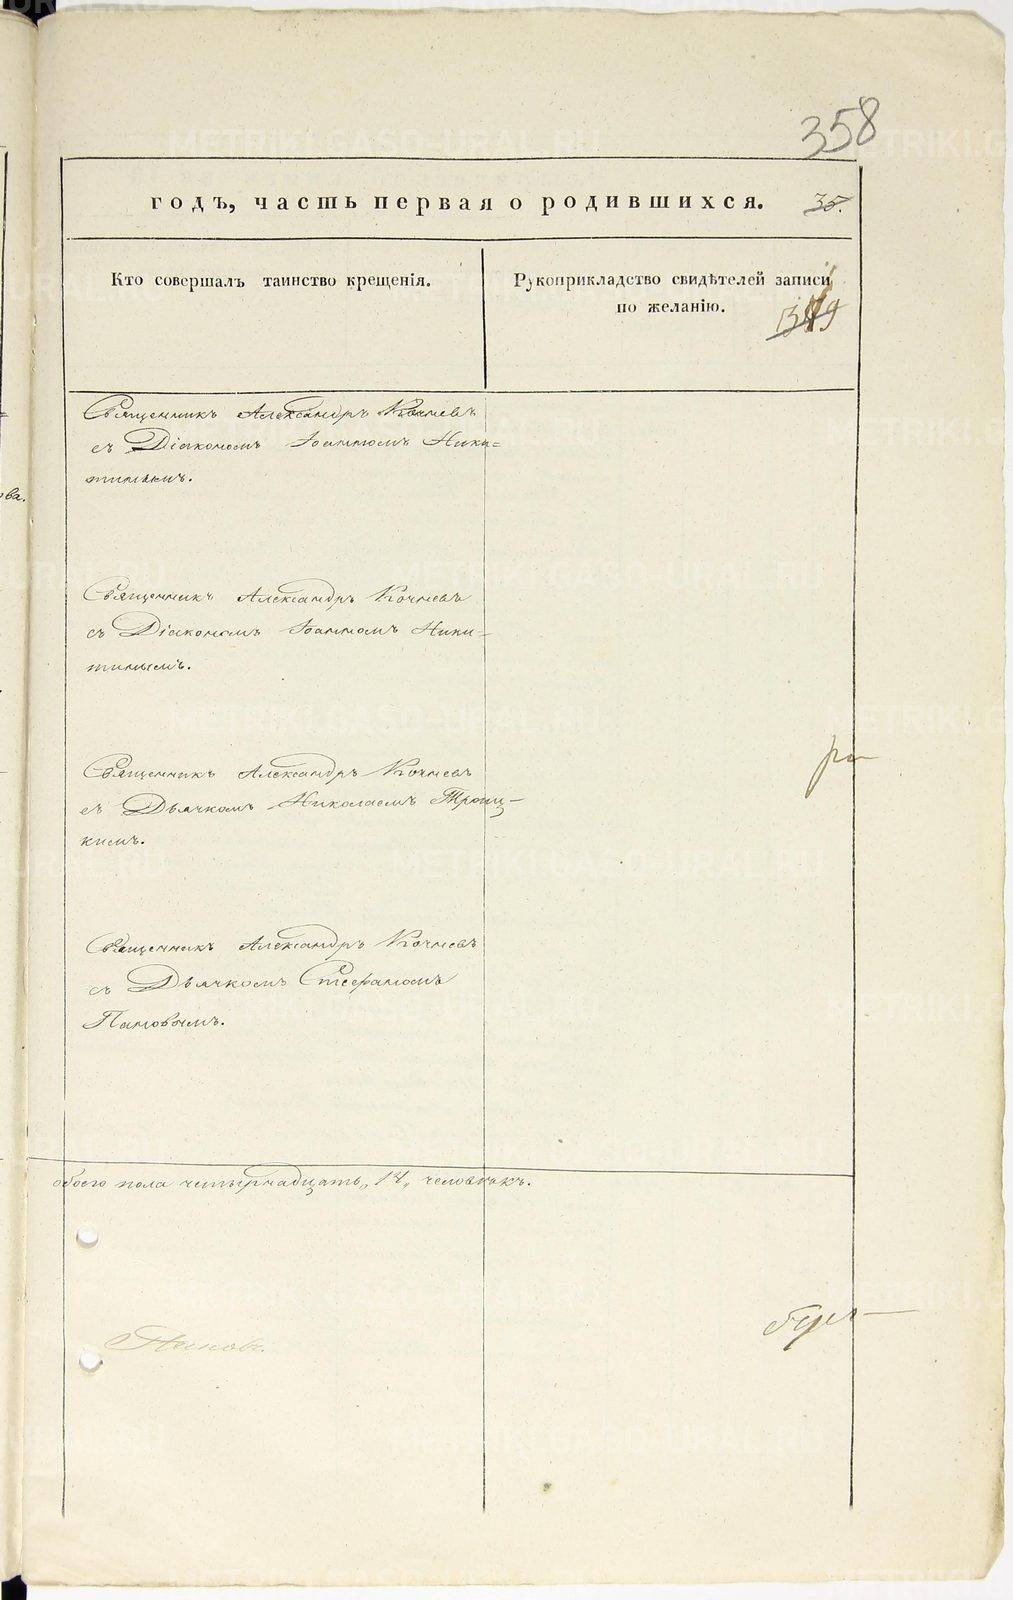 358
годъ, часть первая о родившихся. 35.
Кто совершалъ таинство крещенія.
Рукоприкладство свидѣтелей записи
по желанію.
Священникъ Александръ Кочневъ
съ Діакономъ Іоанномъ Ники=
тинымъ.
ова.
Священникъ Александръ Кочневъ
съ Діакономъ Іоанномъ Ники=
тинымъ.
Священникъ Александръ Кочневъ
съ Дьячкомъ Николаемъ Троиц-
кимъ.
Священникъ Александръ Кочневъ
съ Дьячкомъ Стефаномъ
Пановымъ.
обоего пола четырнадцать „14„ человѣкъ.
Пановъ.
METRIKI.GASO-URAL.RU